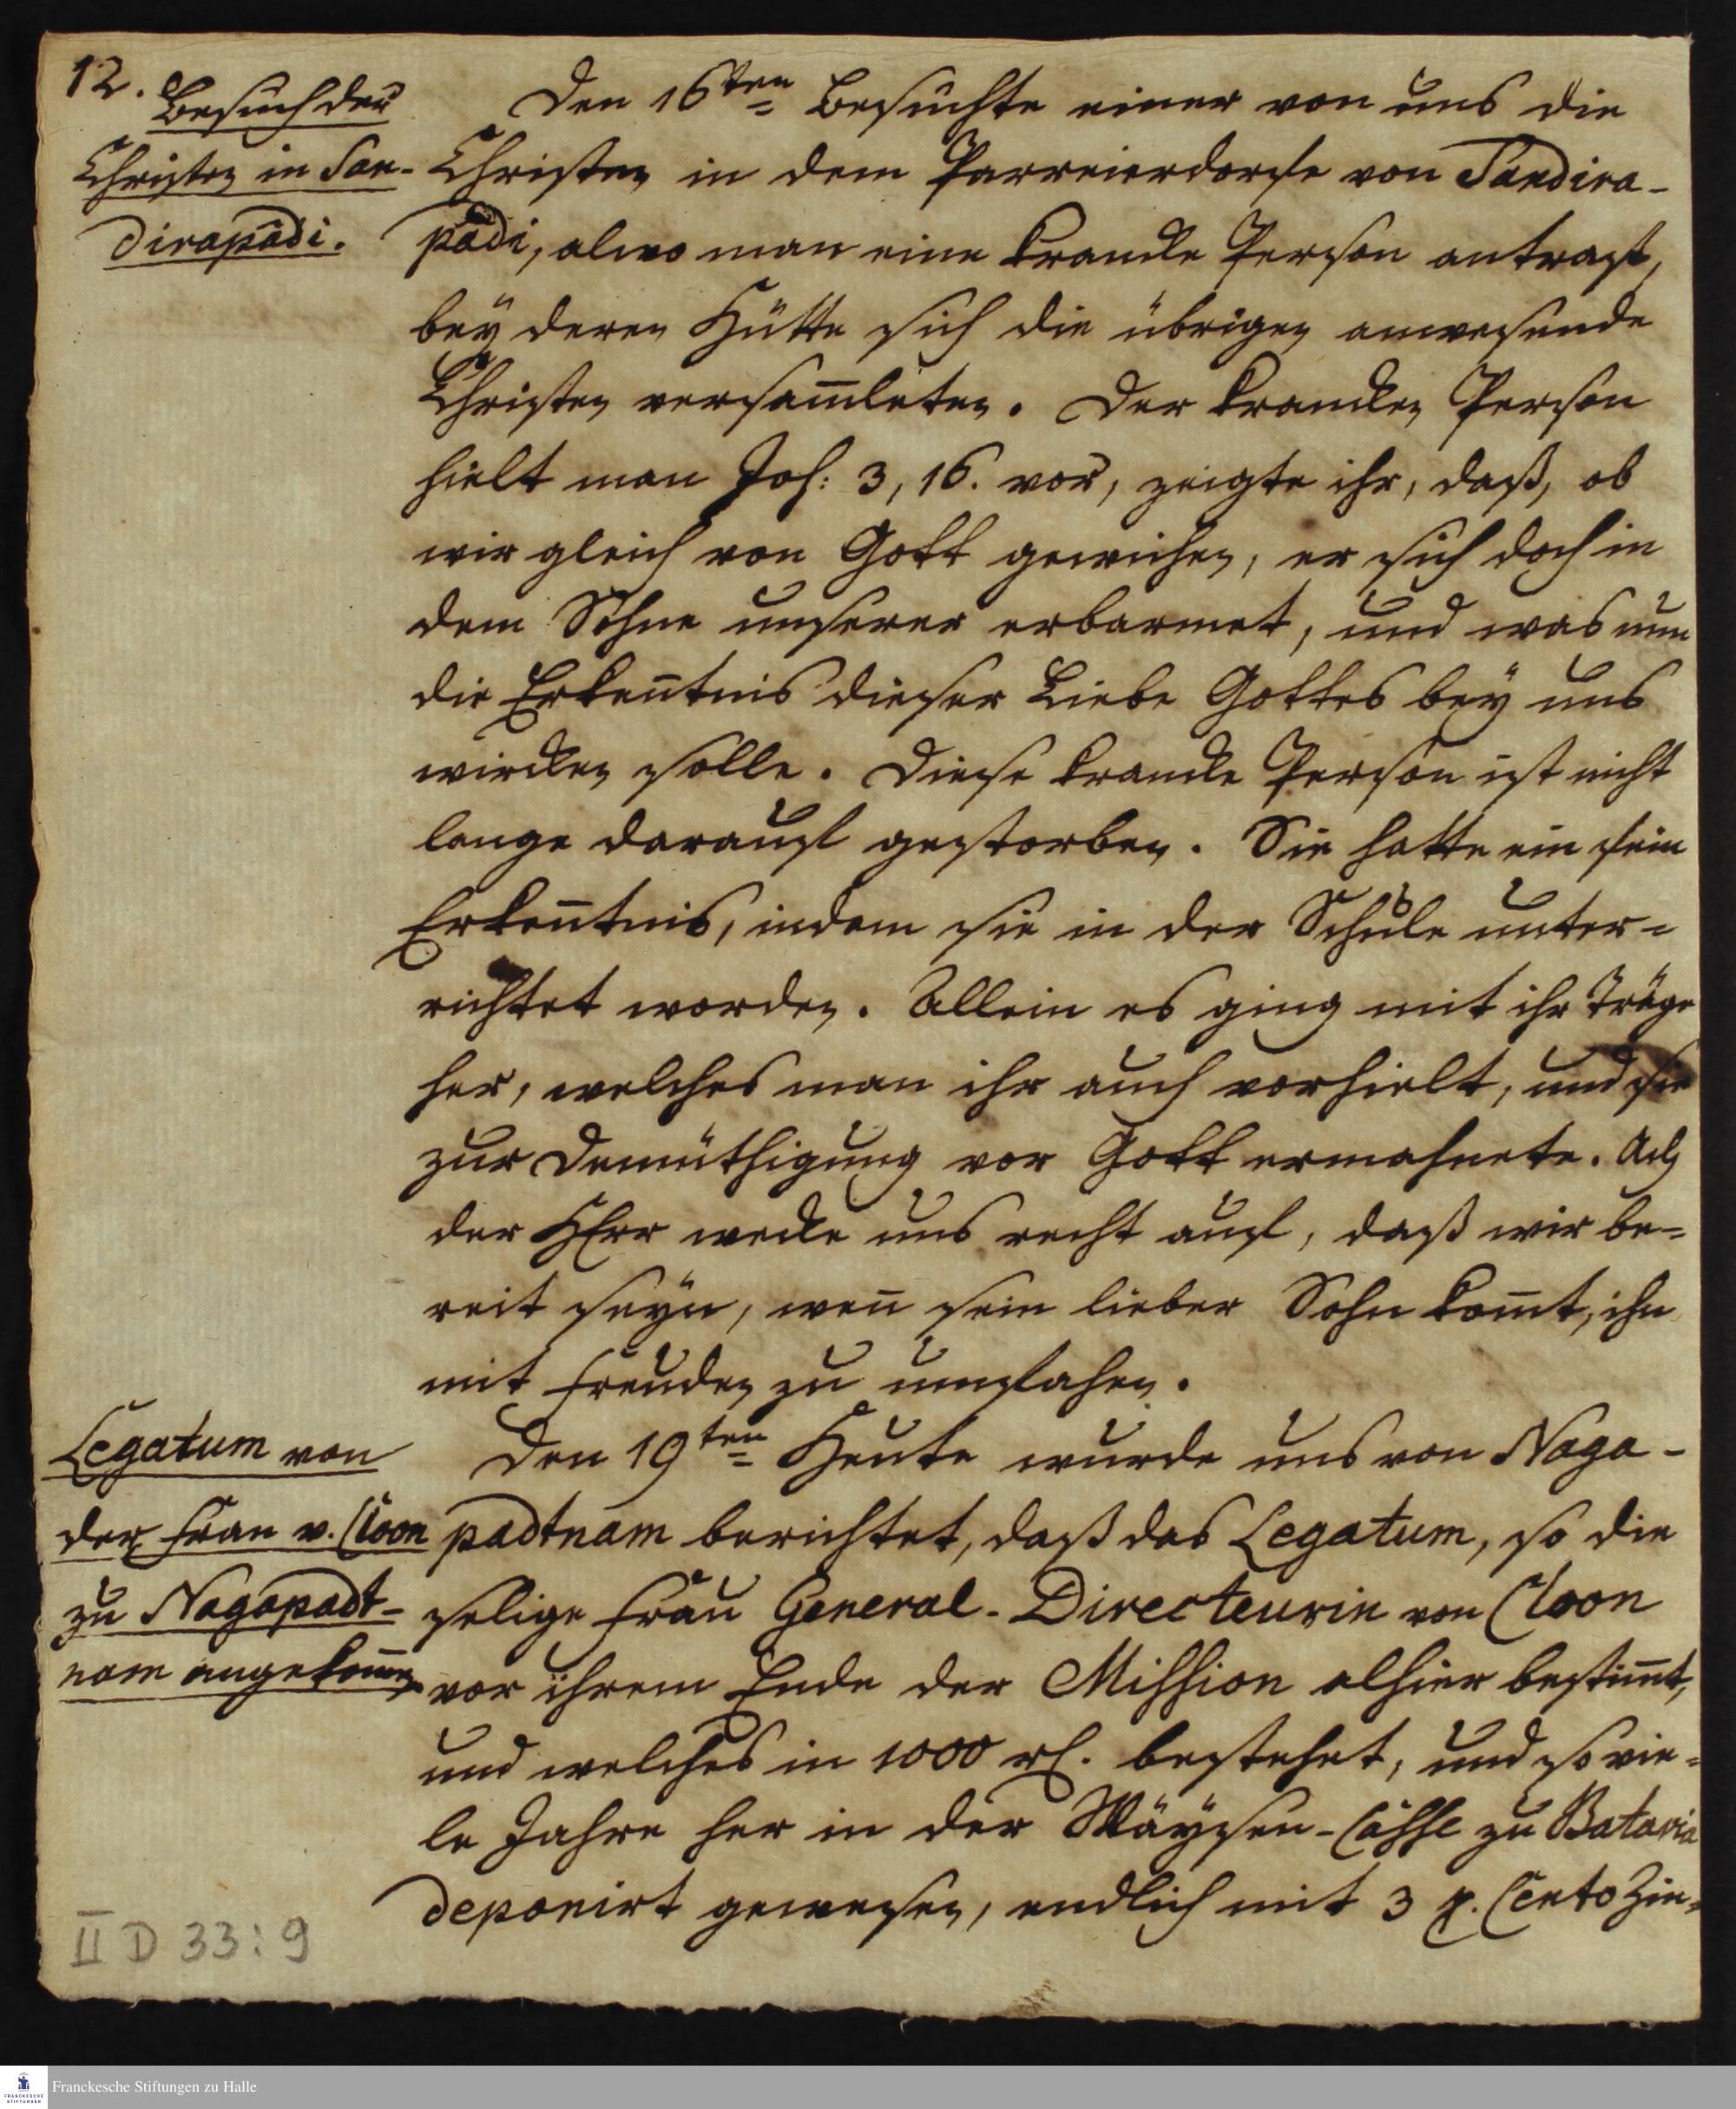 12.
Besuch der
Christen in San-
dirapādi.
Den 16ten Besuchte einer von uns die
Christen in dem Parreierdorfe von Sandira-
pādi, alwo man eine krancke Person antraf,
bey deren Hütte sich die übrigen anwesende
Christen versam̄leten. Der krancken Person
hielt man Joh: 3, 16. vor, zeigte ihr, daß, ob
wir gleich von Gott gewichen, er sich doch in
dem Sohne unserer erbarmet, und was nun
die Erken̄tnis dieser Liebe Gottes bey uns
wircken solle. Diese krancke Person ist nicht
lange darauf gestorben. Sie hatte ein fein
Erken̄tnis, indem sie in der Schule unter-
richtet worden. Allein es ging mit ihr träge
her, welches man ihr auch vorhielt, und sie
zur Demüthigung vor Gott ermahnete. Ach
der HErr wecke uns recht auf, daß wir be-
reit seyn, wen̄ sein lieber Sohn kom̄t, ihn
mit Freuden zu umfahen.
Legatum von
der Frau v. Cloon
zu Nagapadt-
nam angekom̄en.
Den 19ten Heute wurde uns von Naga-
padtnam berichtet, daß das Legatum, so die
selige Frau General-Directeurin von Cloon
vor ihrem Ende der Mission alhier bestim̄t,
und welches in 1000 rh. bestehet, und so vie-
le Jahre her in der Wäysen-Casse zu Batavia
deponirt gewesen, endlich mit 3 p. Cento Zin-
II D 33:9
Franckesche Stiftungen zu Halle
FRANCKESCHE
STIFTUNGEN